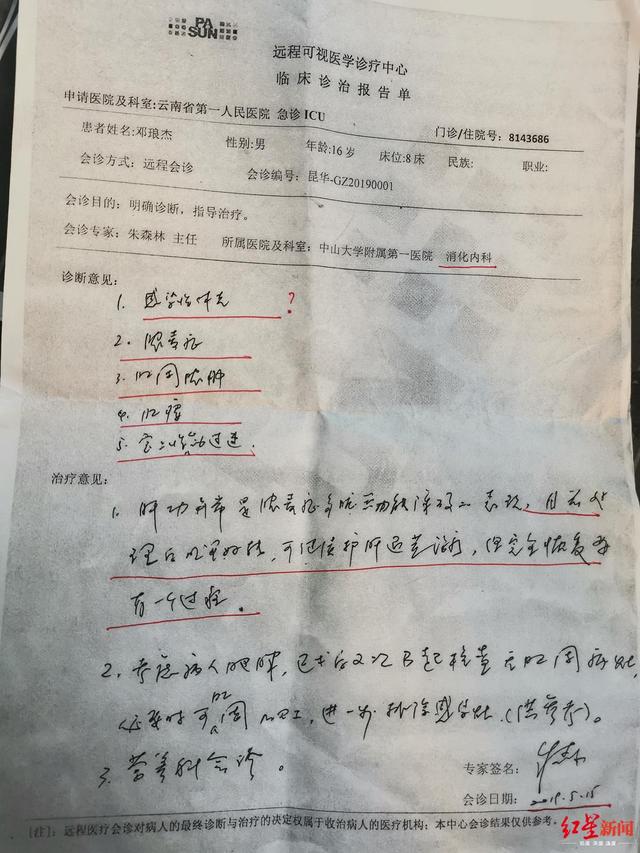 PA
SUN
远程可视医学诊疗中心
临床诊治报告单
申请医院及科室:云南省第一人民医院 急诊ICU 门诊/住院号:8143686
患者姓名:邓琅杰 性别:男 年龄:16岁 床位:8床 民族: 职业:
会诊方式:远程会诊 会诊编号:昆华-GZ20190001
会诊目的:明确诊断,指导治疗。
会诊专家:朱森林 主任 所属医院及科室:中山大学附属第一医院 消化内科
诊断意见:
1. 感染性休克 ?
2. 脓毒症
3. 肛周脓肿
4. 肛瘘
5.
治疗意见:
1. 肝功异常是脓毒症多脏器功能障碍之表现,目前处
理后明显好转,可继续护肝退黄治疗,但完全恢复需
有一个过程。
2. 考虑病人肥胖,已术后又次B超检查无肛周病灶,
必要时可 肛周MRI,进一步排除感染灶(供参考)。
3. 营养科会诊。
专家签名:
会诊日期:2019.5.15
[注]:远程医疗会诊对病人的最终诊断与治疗的决定权属于收治病人的医疗机构;本中心会诊结果仅供参考。
红星新闻